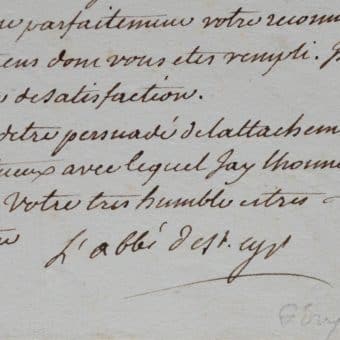 parfaitement votre reconn
dont vous etes rempli.
desatisfaction.
detre persuadé delattachem
avec lequel Jay lhonne
Votre tres humble et tres
L'abbé de St. Cyr